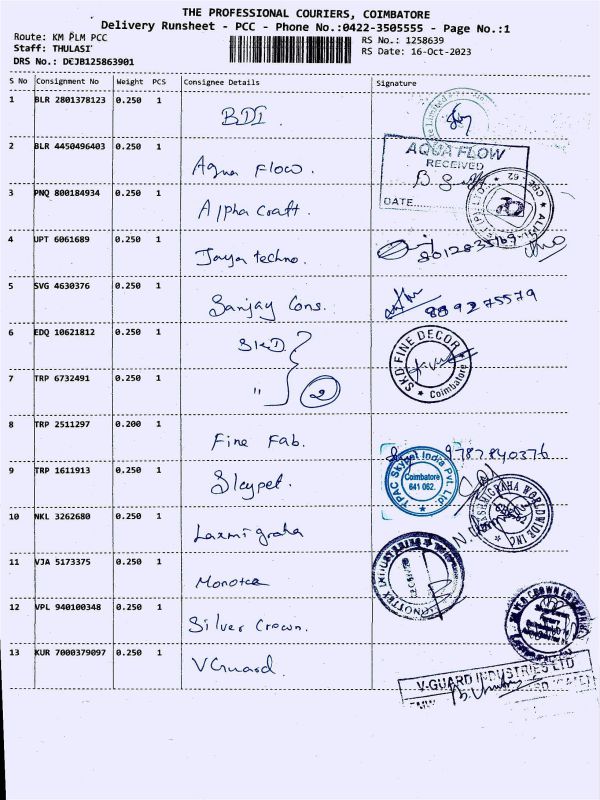 THE PROFESSIONAL COURIERS, COIMBATORE
Delivery Runsheet - PCC - Phone No.:0422-3505555 - Page No.:1
Route: KM PLM PCC
RS No.: 1258639
Staff: THULASI
RS Date: 16-Oct-2023
DRS No.: DEJB125863901
S No Consignment No Weight PCS Consignee Details Signature
1 BLR 2801378123 0.250 1 BDI
2 BLR 4450496403 0.250 1 Aqua Flow.
AQUA FLOW
RECEIVED
DATE
3 PNQ 800184934 0.250 1 Alpha Craft.
4 UPT 6061689 0.250 1 Jaya techno.
5 SVG 4630376 0.250 1 Sanjay Cons. 8892275579
6 EDQ 10621812 0.250 1 SKD
SKD FINE DECOR
Coimbatore
7 TRP 6732491 0.250 1 " 2
8 TRP 2511297 0.200 1 Fine Fab. 9787840376
9 TRP 1611913 0.250 1 Skypet.
IPAC Skypet India Pvt. Ltd.
Coimbatore
641 062.
10 NKL 3262680 0.250 1 Laxmi graha
WORLDWIDE INC
11 VJA 5173375 0.250 1 Monotex
12 VPL 940100348 0.250 1 Silver Crown.
13 KUR 7000379097 0.250 1 VGuard.
V-GUARD INDUSTRIES LTD